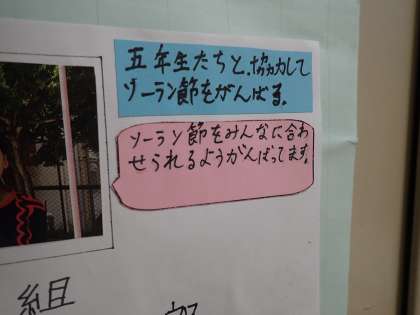 五年生たちと、協力して
ソーラン節をがんばる。
ソーラン節をみんなに合わ
せられるようがんばってます。
組